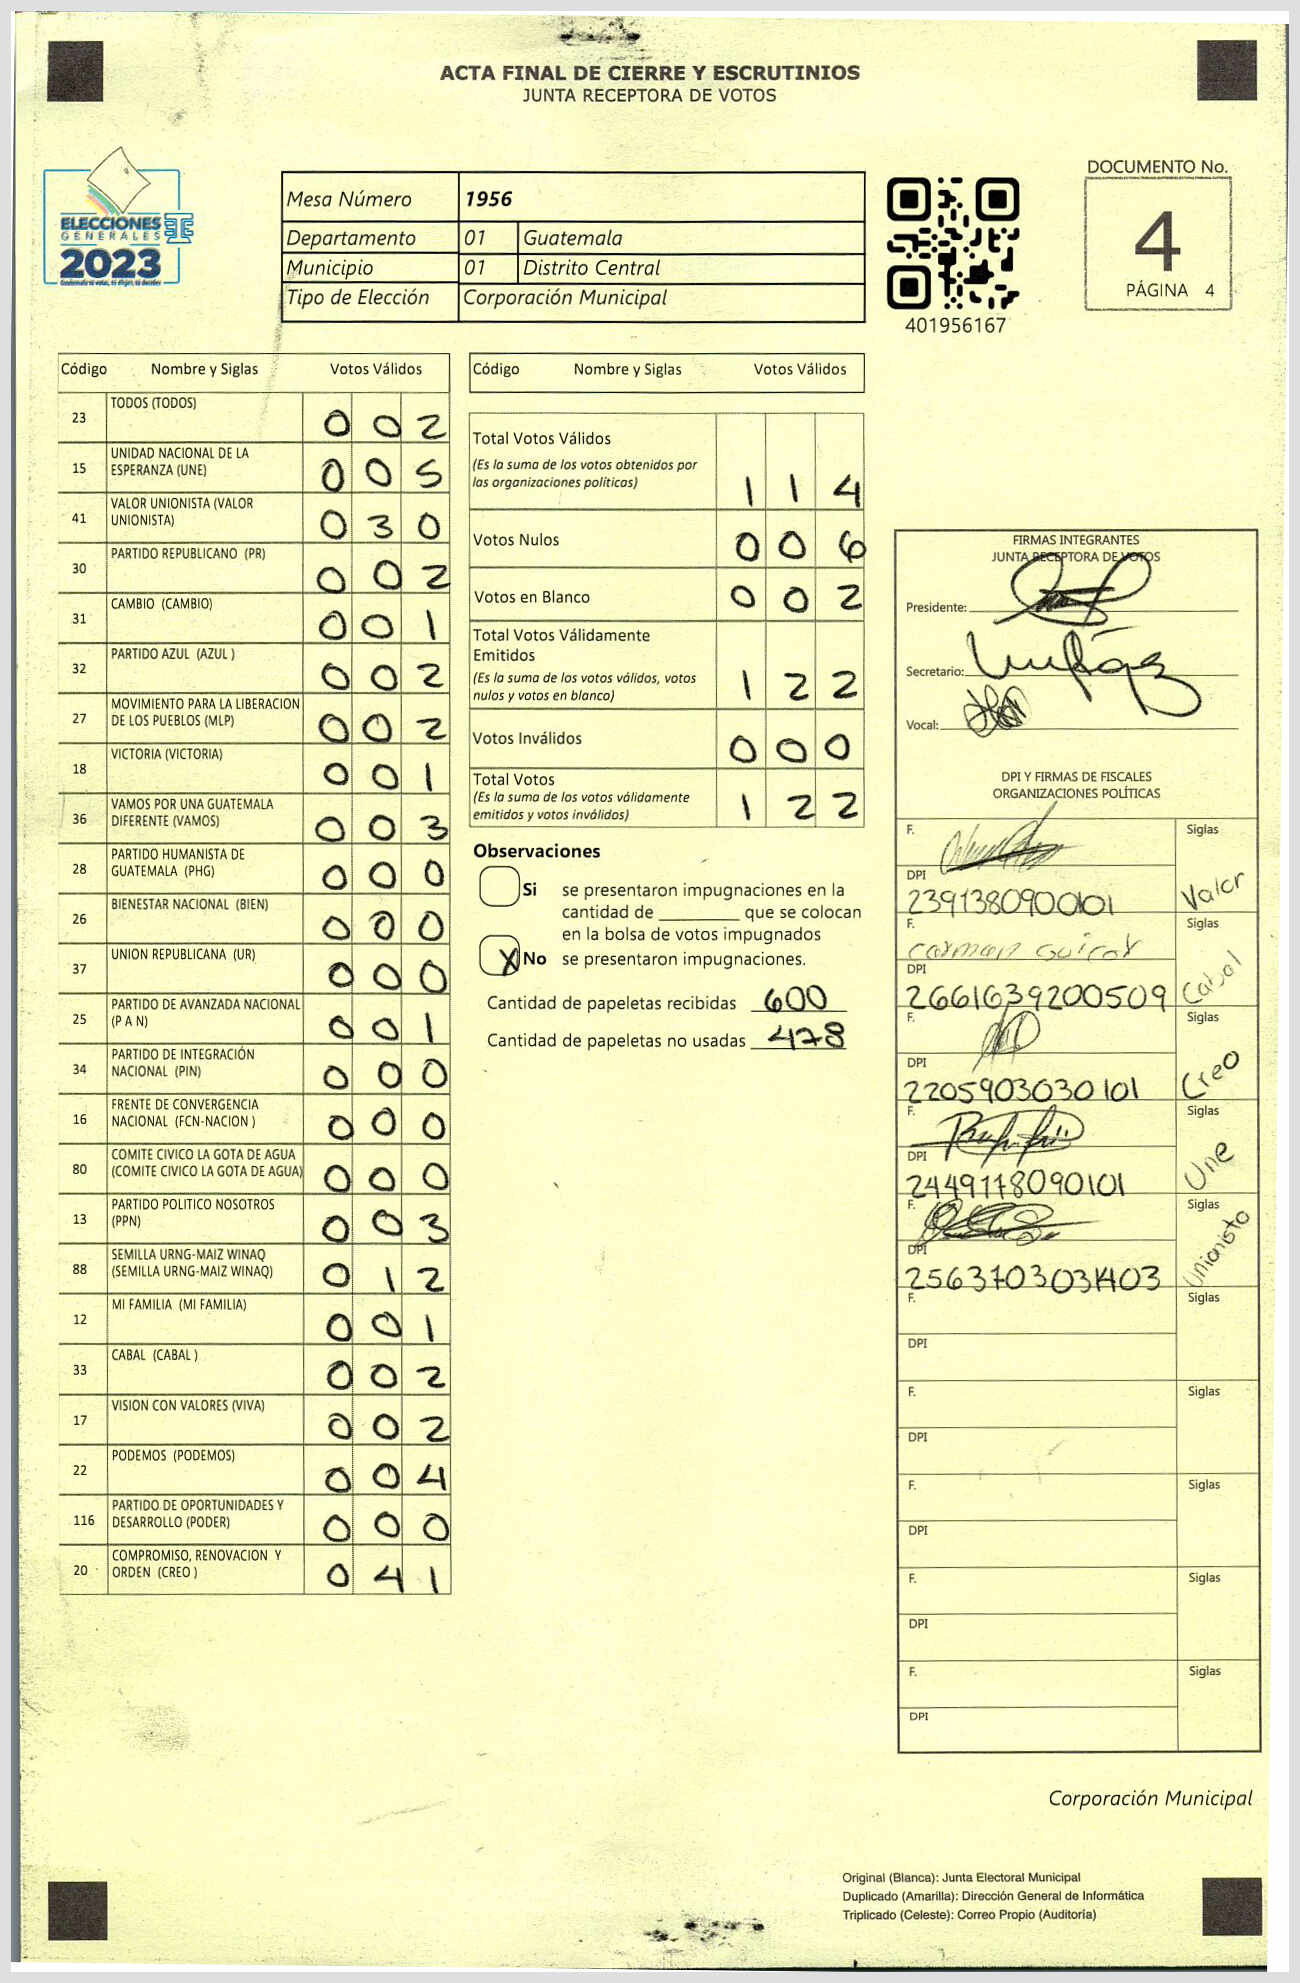 ACTA FINAL DE CIERRE Y ESCRUTINIOS
JUNTA RECEPTORA DE VOTOS
ELECCIONES
GENERALES
2023
Mesa Número 1956
Departamento 01 Guatemala
Municipio 01 Distrito Central
Tipo de Elección Corporación Municipal
401956167
DOCUMENTO No.
4
PÁGINA 4
Código Nombre y Siglas Votos Válidos
23 TODOS (TODOS) 0 0 2
15 UNIDAD NACIONAL DE LA
ESPERANZA (UNE) 0 0 5
41 VALOR UNIONISTA (VALOR
UNIONISTA) 0 3 0
30 PARTIDO REPUBLICANO (PR) 0 0 2
31 CAMBIO (CAMBIO) 0 0 1
32 PARTIDO AZUL (AZUL ) 0 0 2
27 MOVIMIENTO PARA LA LIBERACION
DE LOS PUEBLOS (MLP) 0 0 2
18 VICTORIA (VICTORIA) 0 0 1
36 VAMOS POR UNA GUATEMALA
DIFERENTE (VAMOS) 0 0 3
28 PARTIDO HUMANISTA DE
GUATEMALA (PHG) 0 0 0
26 BIENESTAR NACIONAL (BIEN) 0 0 0
37 UNION REPUBLICANA (UR) 0 0 0
25 PARTIDO DE AVANZADA NACIONAL
(P A N) 0 0 1
34 PARTIDO DE INTEGRACIÓN
NACIONAL (PIN) 0 0 0
16 FRENTE DE CONVERGENCIA
NACIONAL (FCN-NACION ) 0 0 0
80 COMITE CIVICO LA GOTA DE AGUA
(COMITE CIVICO LA GOTA DE AGUA) 0 0 0
13 PARTIDO POLITICO NOSOTROS
(PPN) 0 0 3
88 SEMILLA URNG-MAIZ WINAQ
(SEMILLA URNG-MAIZ WINAQ) 0 1 2
12 MI FAMILIA (MI FAMILIA) 0 0 1
33 CABAL (CABAL ) 0 0 2
17 VISION CON VALORES (VIVA) 0 0 2
22 PODEMOS (PODEMOS) 0 0 4
116 PARTIDO DE OPORTUNIDADES Y
DESARROLLO (PODER) 0 0 0
20 COMPROMISO, RENOVACION Y
ORDEN (CREO ) 0 4 1
Código Nombre y Siglas Votos Válidos
Total Votos Válidos
(Es la suma de los votos obtenidos por
las organizaciones políticas) 1 1 4
Votos Nulos 0 0 6
Votos en Blanco 0 0 2
Total Votos Válidamente
Emitidos
(Es la suma de los votos válidos, votos
nulos y votos en blanco) 1 2 2
Votos Inválidos 0 0 0
Total Votos
(Es la suma de los votos válidamente
emitidos y votos inválidos) 1 2 2
Observaciones
Si se presentaron impugnaciones en la
cantidad de ________ que se colocan
en la bolsa de votos impugnados
X No se presentaron impugnaciones.
Cantidad de papeletas recibidas 600
Cantidad de papeletas no usadas 478
FIRMAS INTEGRANTES
JUNTA RECEPTORA DE VOTOS
Presidente:
Secretario:
Vocal:
DPI Y FIRMAS DE FISCALES
ORGANIZACIONES POLÍTICAS
F. Siglas
DPI
2391380900101 Valor
F. Siglas
DPI
2661639200509 Cabal
F. Siglas
DPI
2205903030101 Creo
F. Siglas
DPI
2449178090101 Une
F. Siglas
DPI
2563703031403 Unionisto
F. Siglas
DPI
F. Siglas
DPI
F. Siglas
DPI
F. Siglas
DPI
F. Siglas
DPI
Corporación Municipal
Original (Blanca): Junta Electoral Municipal
Duplicado (Amarilla): Dirección General de Informática
Triplicado (Celeste): Correo Propio (Auditoría)